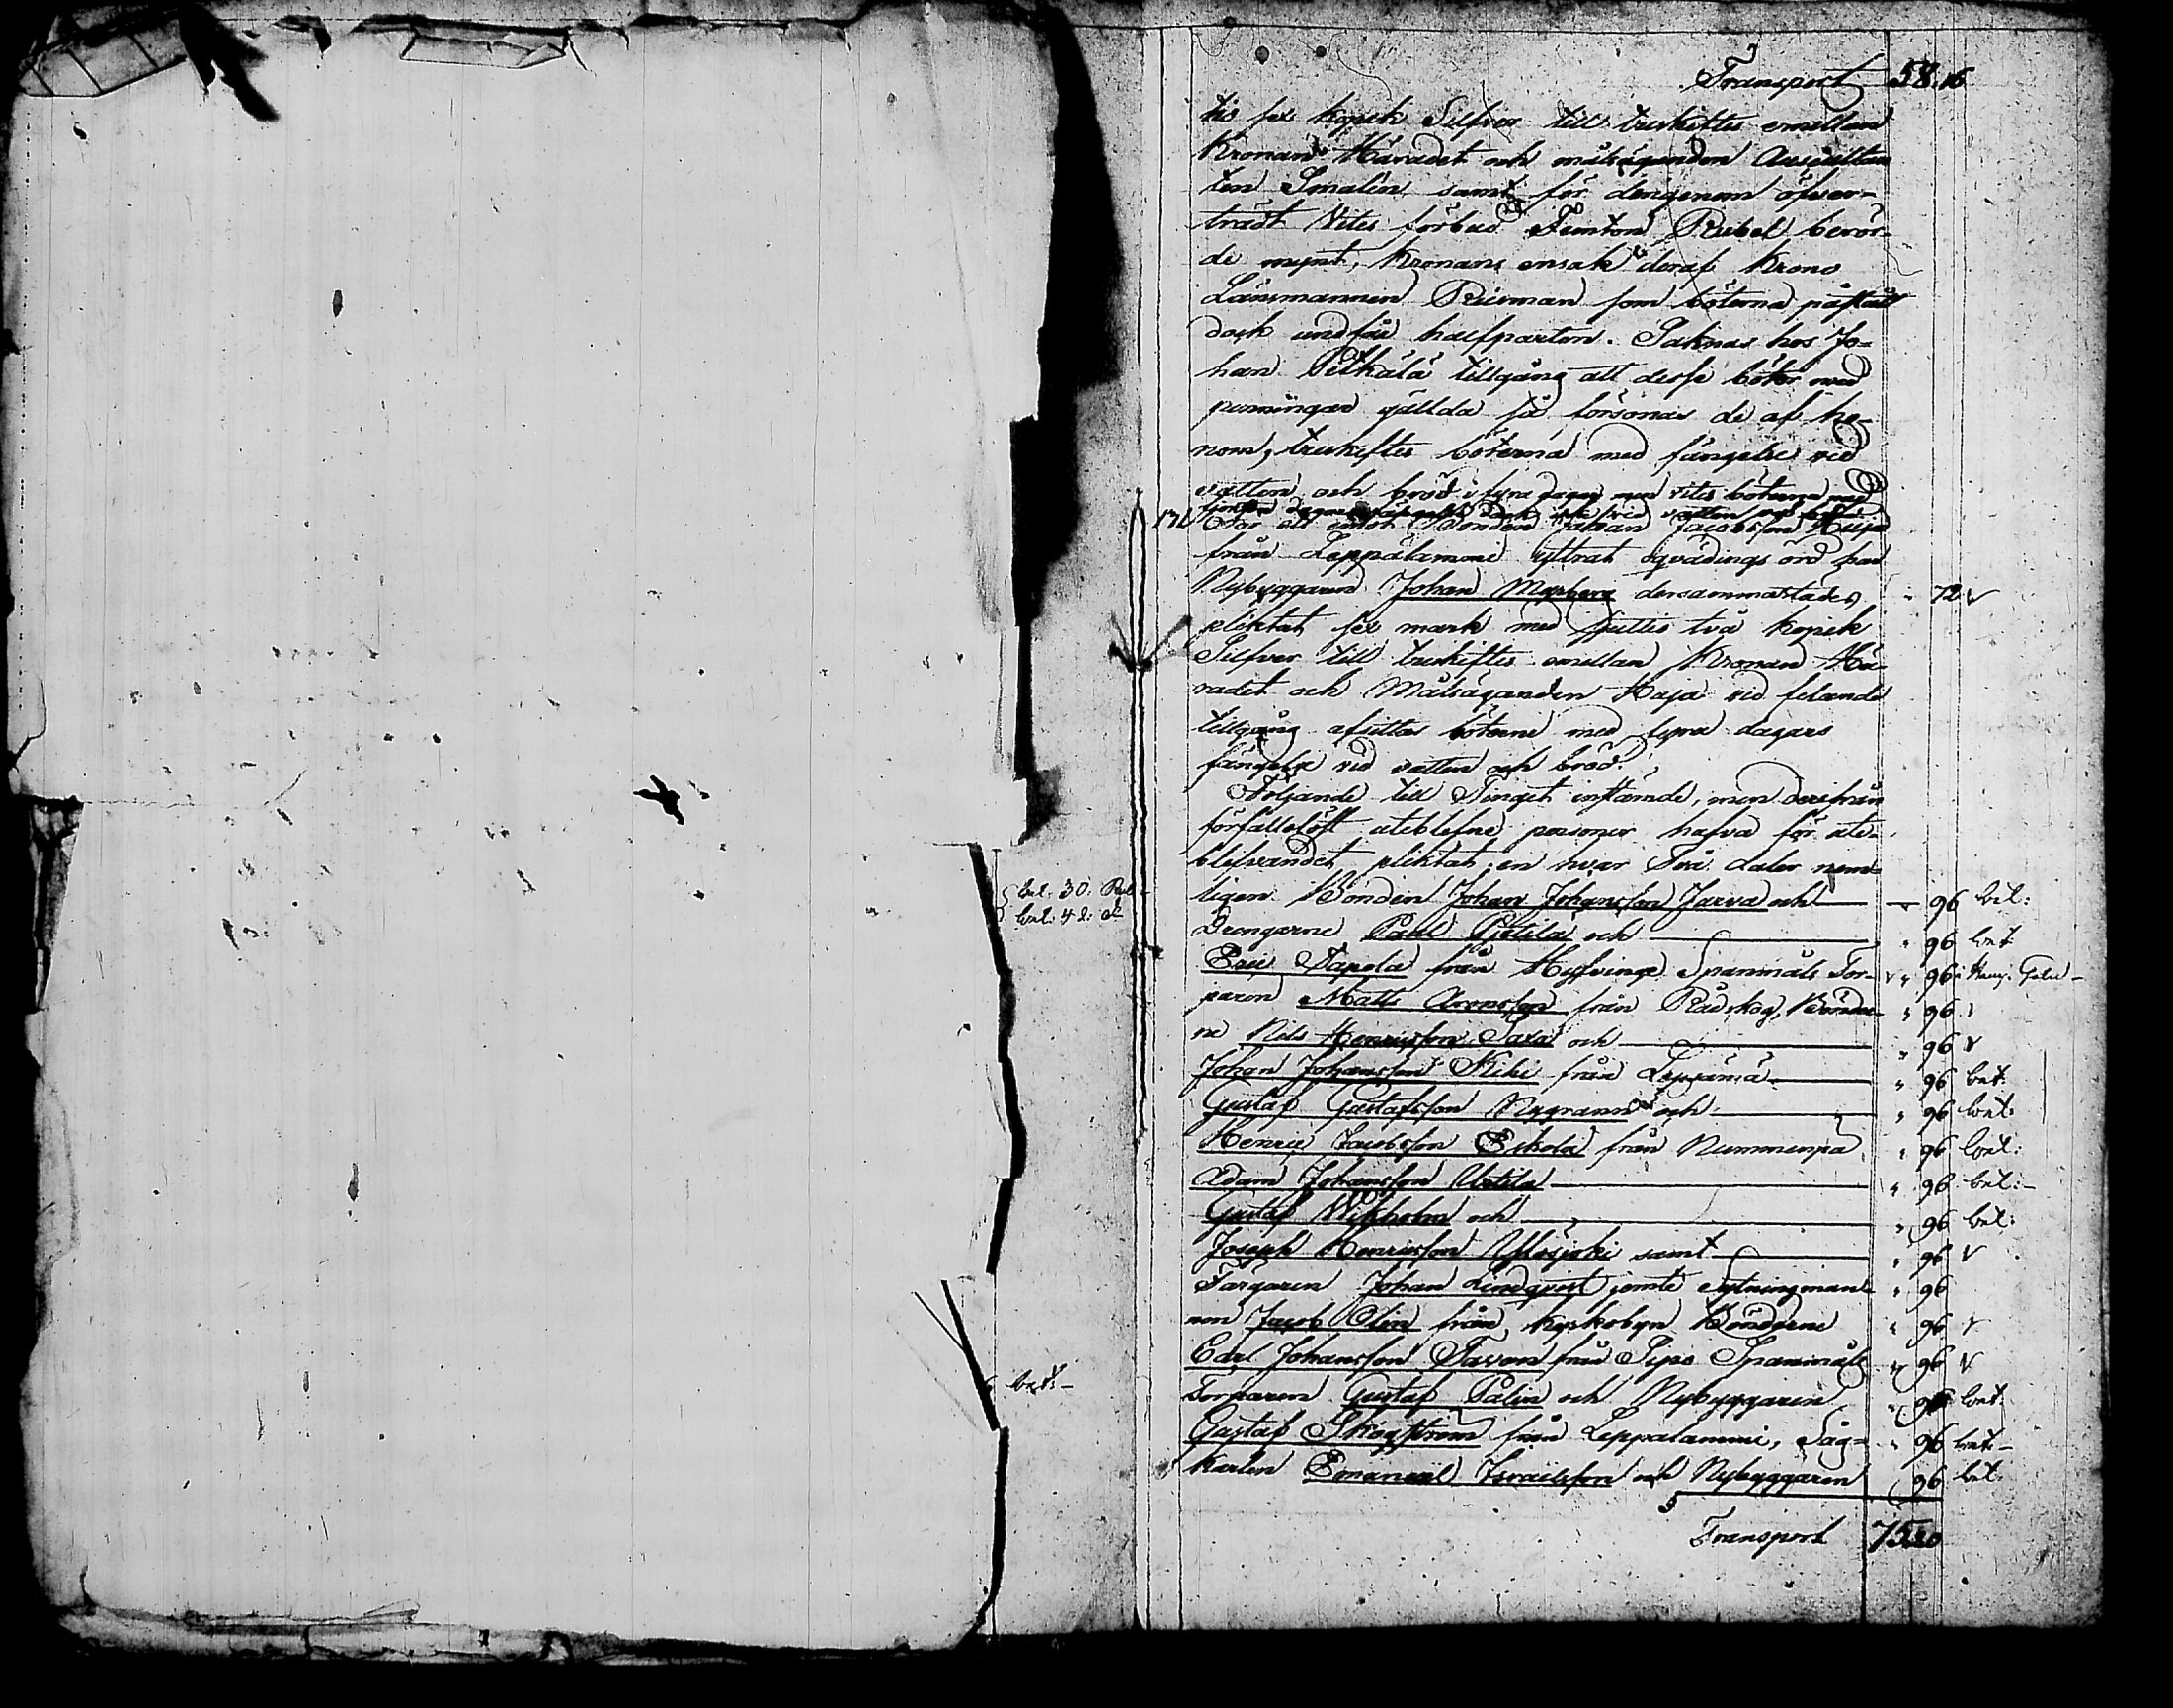 Transport 58.16
tio sex kopek Silfver till treskiftes emellan
Kronan Häradet och målsäganden Auscultan
ten Smalén samt för dengenom öfver-
trädt Vites förbud Femton Rubel berör-
de mynt, Kronans ensak deraf Krono
Länsmannen Riisman som böterna påstått
dock undfår halfparten. Saknas hos Jo-
han Pitkälä tillgång att desse böter med
penningar gällda så försonas de af ho-
nom, treskiftes böterna med fängelse vid
vatten och bröd i fyra dagar men vites böterna med
fjorton dagars fängelse dock icke vid vatten och bröd
131 För att emot Bonden Johan Jacobsson Haija
från Leppälammi yttrat oqvädings ord har
Nybyggaren Johan Myrberg dersammastädes " 72 v
pliktat sex mark med sjuttio två kopek
Silfver till treskiftes emellan Kronan Hä-
radet och Målsäganden Haja vid felande
tillgång afsittas böterne med fyra dagars
fängelse vid vatten och bröd.
Följande till Tinget instämde, men derifrån
förfallolöst uteblefne personer hafva för ute-
blifvandet pliktat en hvar Två daler nem-
bet. 30. Rub
ligen Bonden Johan Johansson Jarva och " 96 bet:
bet: 42. d
Drengarne Paul Pietilä och " 96 bet
Eric Tapola från Hyfvinge Spanmåls Tor- v " 96
paren Matts Aronsson från Rådskog, Bönder- " 96 v
ne Nils Henricsson Saxa och " 96 v
Johan Johansson Kiki från Leppämä " 96 bet:
Gustaf Gustafsson Nygrann och " 96 bet:
Henric Jacobsson Eskola från Nummenpä " 96 bet:
Adam Johansson Uotila " 96 bet:-
Gustaf Wikholm och " 96 bet:
Joseph Henricsson Ylösjoki samt " 96 v
Färgaren Johan Lindqvist jemte Sytningsman- " 96
nen Jacob Olin från Kyrkobyn Bönderne " 96 v
Carl Johansson Tavon från Sipo Spanmåls " 96 v
bet:-
Torparen Gustaf Palin och Nybyggaren " 96 bet:
Gustaf Skogström från Leppalammi, Såg- " 96 bet:-
karlen Emanuel Israelsson och Nybyggaren 96 bet:
Transport 75.20